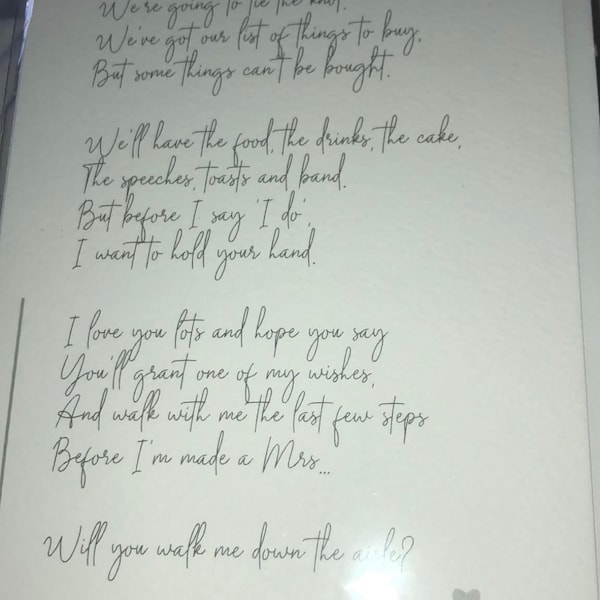 We're going to tie the knot.
We've got our list of things to buy.
But some things can't be bought.
We'll have the food, the drinks, the cake,
The speeches, toasts and band.
But before I say 'I do',
I want to hold your hand.
I love you lots and hope you say
You'll grant one of my wishes,
And walk with me the last few steps
Before I'm made a Mrs...
Will you walk me down the aisle?